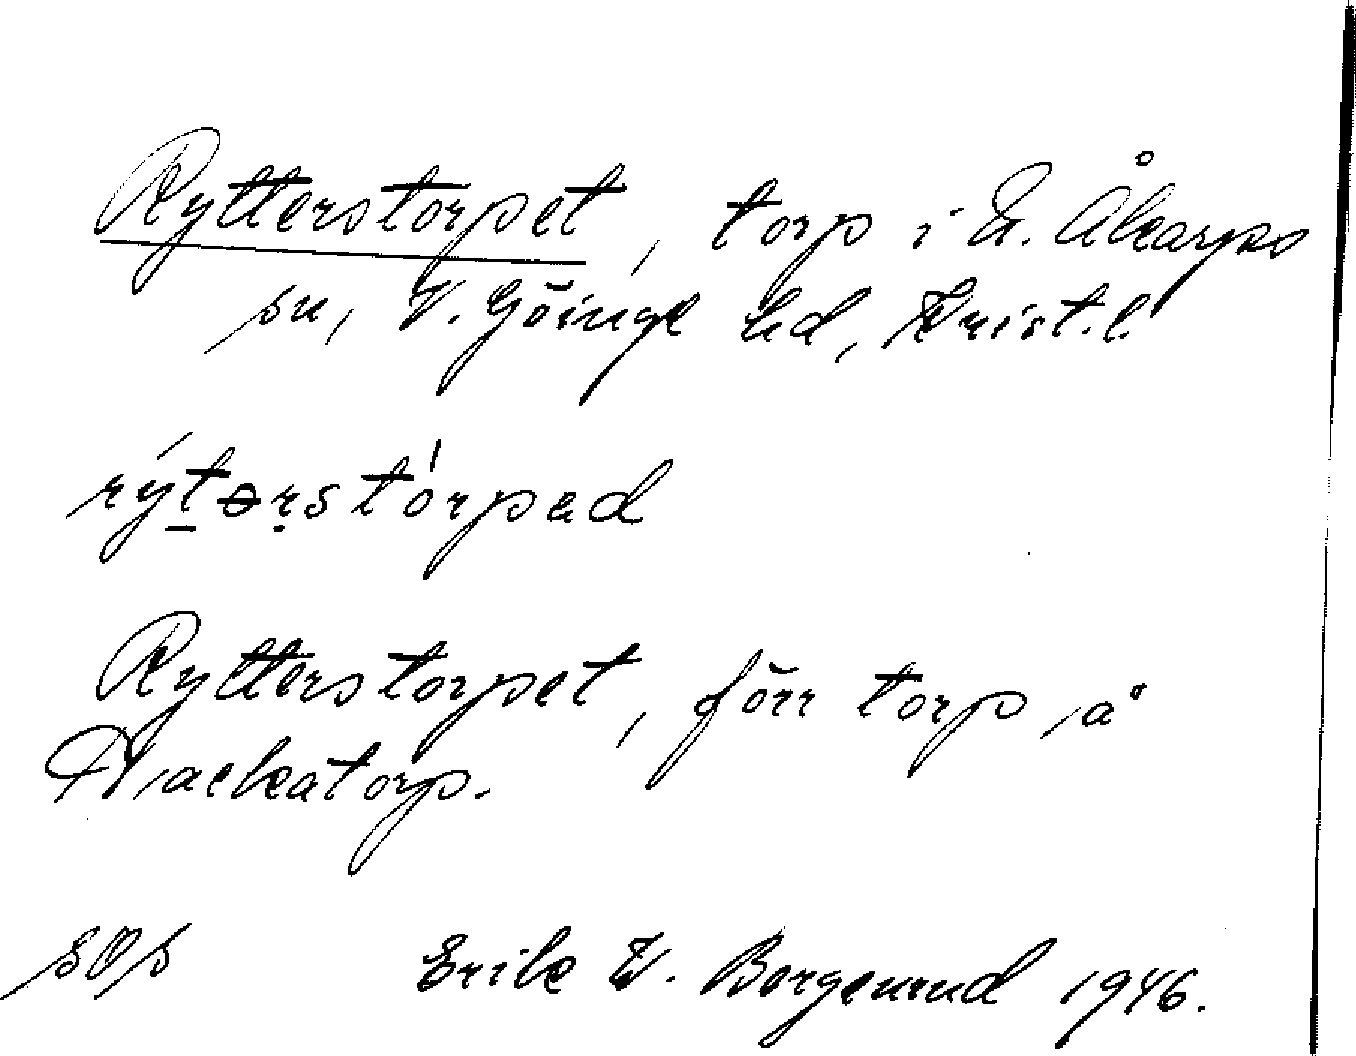 Rytterstorpet, torp i N. Åkarps
sn, V. Göinge hd, Krist. l.
rýtərstórpəd
Rytterstorpet, förr torp på
Hackatorp.
sOs Erik W. Borgenrud 1946.